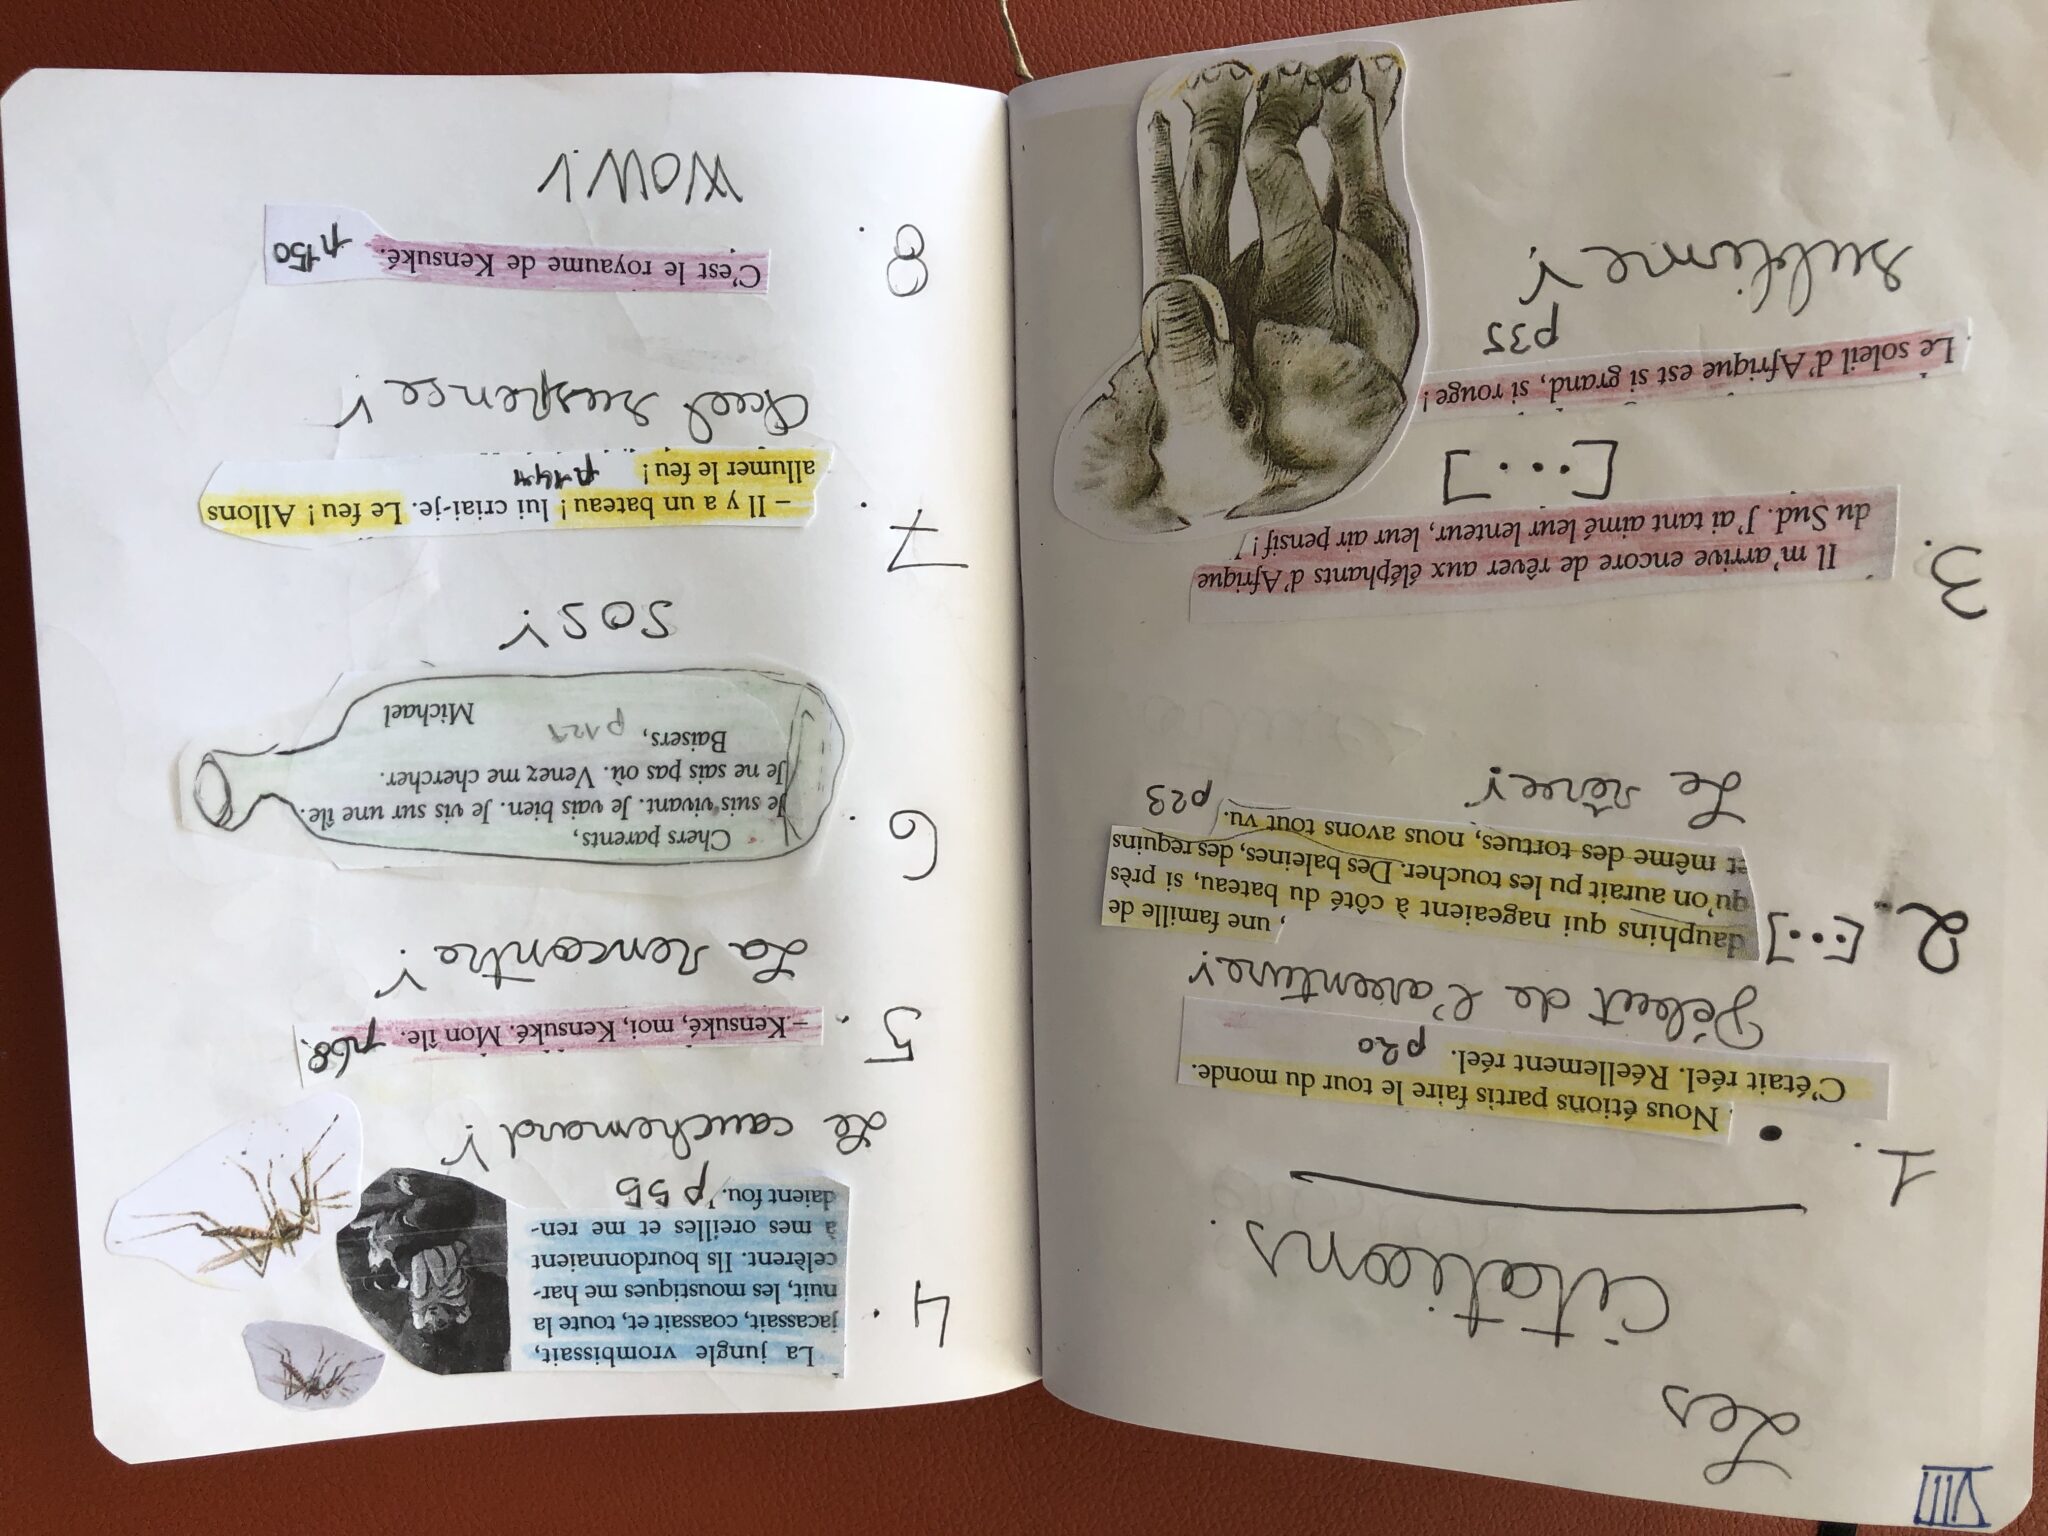 VIII
Les
citations.
1.
• Nous étions partis faire le tour du monde.
C'était réel. Réellement réel. p20
Début de l'aventure !
2. [...] , une famille de
dauphins qui nageaient à côté du bateau, si près
qu'on aurait pu les toucher. Des baleines, des requins
et même des tortues, nous avons tout vu. p23
Le rêve !
3. Il m'arrive encore de rêver aux éléphants d'Afrique
du Sud. J'ai tant aimé leur lenteur, leur air pensif !
[...]
Le soleil d'Afrique est si grand, si rouge !
p35
sublime !
4. La jungle vrombissait,
jacassait, coassait et, toute la
nuit, les moustiques me har-
celèrent. Ils bourdonnaient
à mes oreilles et me ren-
daient fou. p55
Le cauchemard !
5. – Kensuké, moi, Kensuké. Mon île. p68
La rencontre !
6. Chers parents,
Je suis vivant. Je vais bien. Je vis sur une île.
Je ne sais pas où. Venez me chercher.
Baisers, p121
Michael
SOS !
7. – Il y a un bateau ! lui criai-je. Le feu ! Allons
allumer le feu ! p144
Quel suspence !
8. C'est le royaume de Kensuké. p150
WOW !